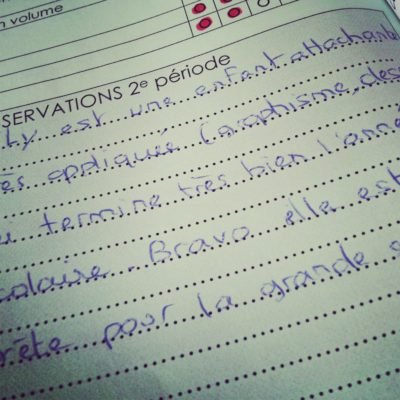 n volume
SERVATIONS 2e période
ly est une enfant attachante
ès appliquée (graphisme, des
ui termine très bien l'anné
colaire. Bravo elle est
rête pour la grande s